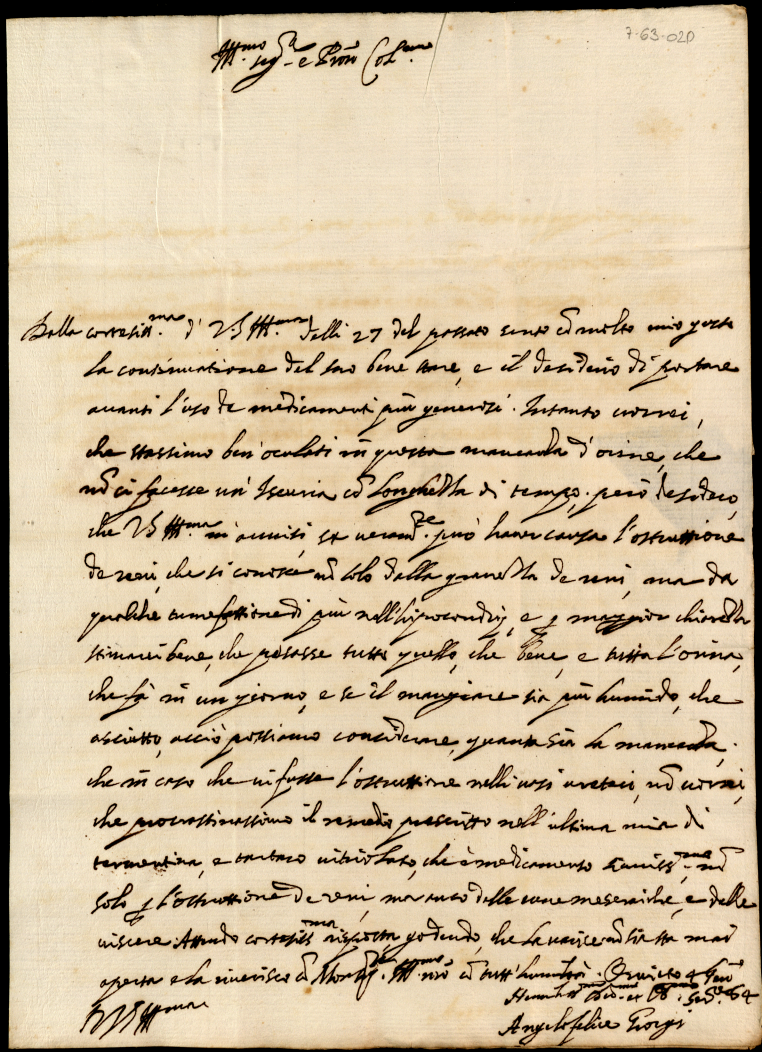 7-63-020
Ill.mo Sig.r e Pron Col.mo
Dalla cortesiss.ma d' V.S Ill.ma delli 27 del passato sento cõ molto mio gusto
la continuatione del suo bene stare, e il desiderio di portare
avanti l'uso de medicamenti più generosi. Intanto vorrei,
che stassimo ben' oculati in questa mancanza d'orine, che
nõ ci facesse un' Iscuria cõ longhezza di tempo, però desidero,
che V.S Ill.ma m'avvisi, se veram.te può haver causa l'ostruttione
de reni, che si conosce nõ solo dalla gravezza de reni, ma da
qualche tumefattione di più nell'hipocondrij, e p maggior chiarezza
stimarei bene, che pesasse tutto quello, che beve, e tutta l'orina,
che fà in un giorno, e se il mangiare sia più humido, che
asciutto, acciò possiamo considerare, quanta sia la mancanza.
che in caso che vi fusse l'ostruttione nelli vasi ureteri, nõ vorrei,
che procrastinassimo il remedio prescritto nell'ultima mia di
termentina, e tartaro vitriolato, che è medicamento nõ
solo p l'ostruttione de reni, ma anco delle vene meseraiche, e delle
viscere. Attendo cortesiss.ma risposta godendo, che la sia stia mai
aperta e la riverisco cõ Mons.r Ill.mo nro cõ tutt'humiltà. Orvieto 4 Gen.o
D V.S Ill.ma
Angelofelice Giorgi